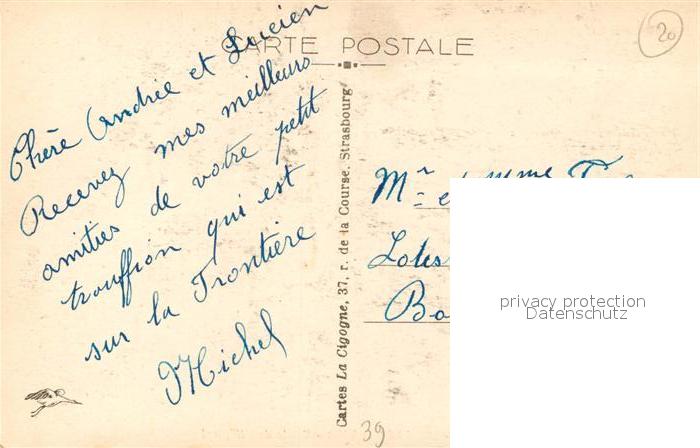 CARTE POSTALE
20
Chère Andrée et Lucien
Recevez mes meilleurs
amitiés de votre petit
trouffion qui est
sur la Frontière
Michel
Cartes La Cigogne, 37, r. de la Course. Strasbourg
Mr et Mme
privacy protection
Datenschutz
39